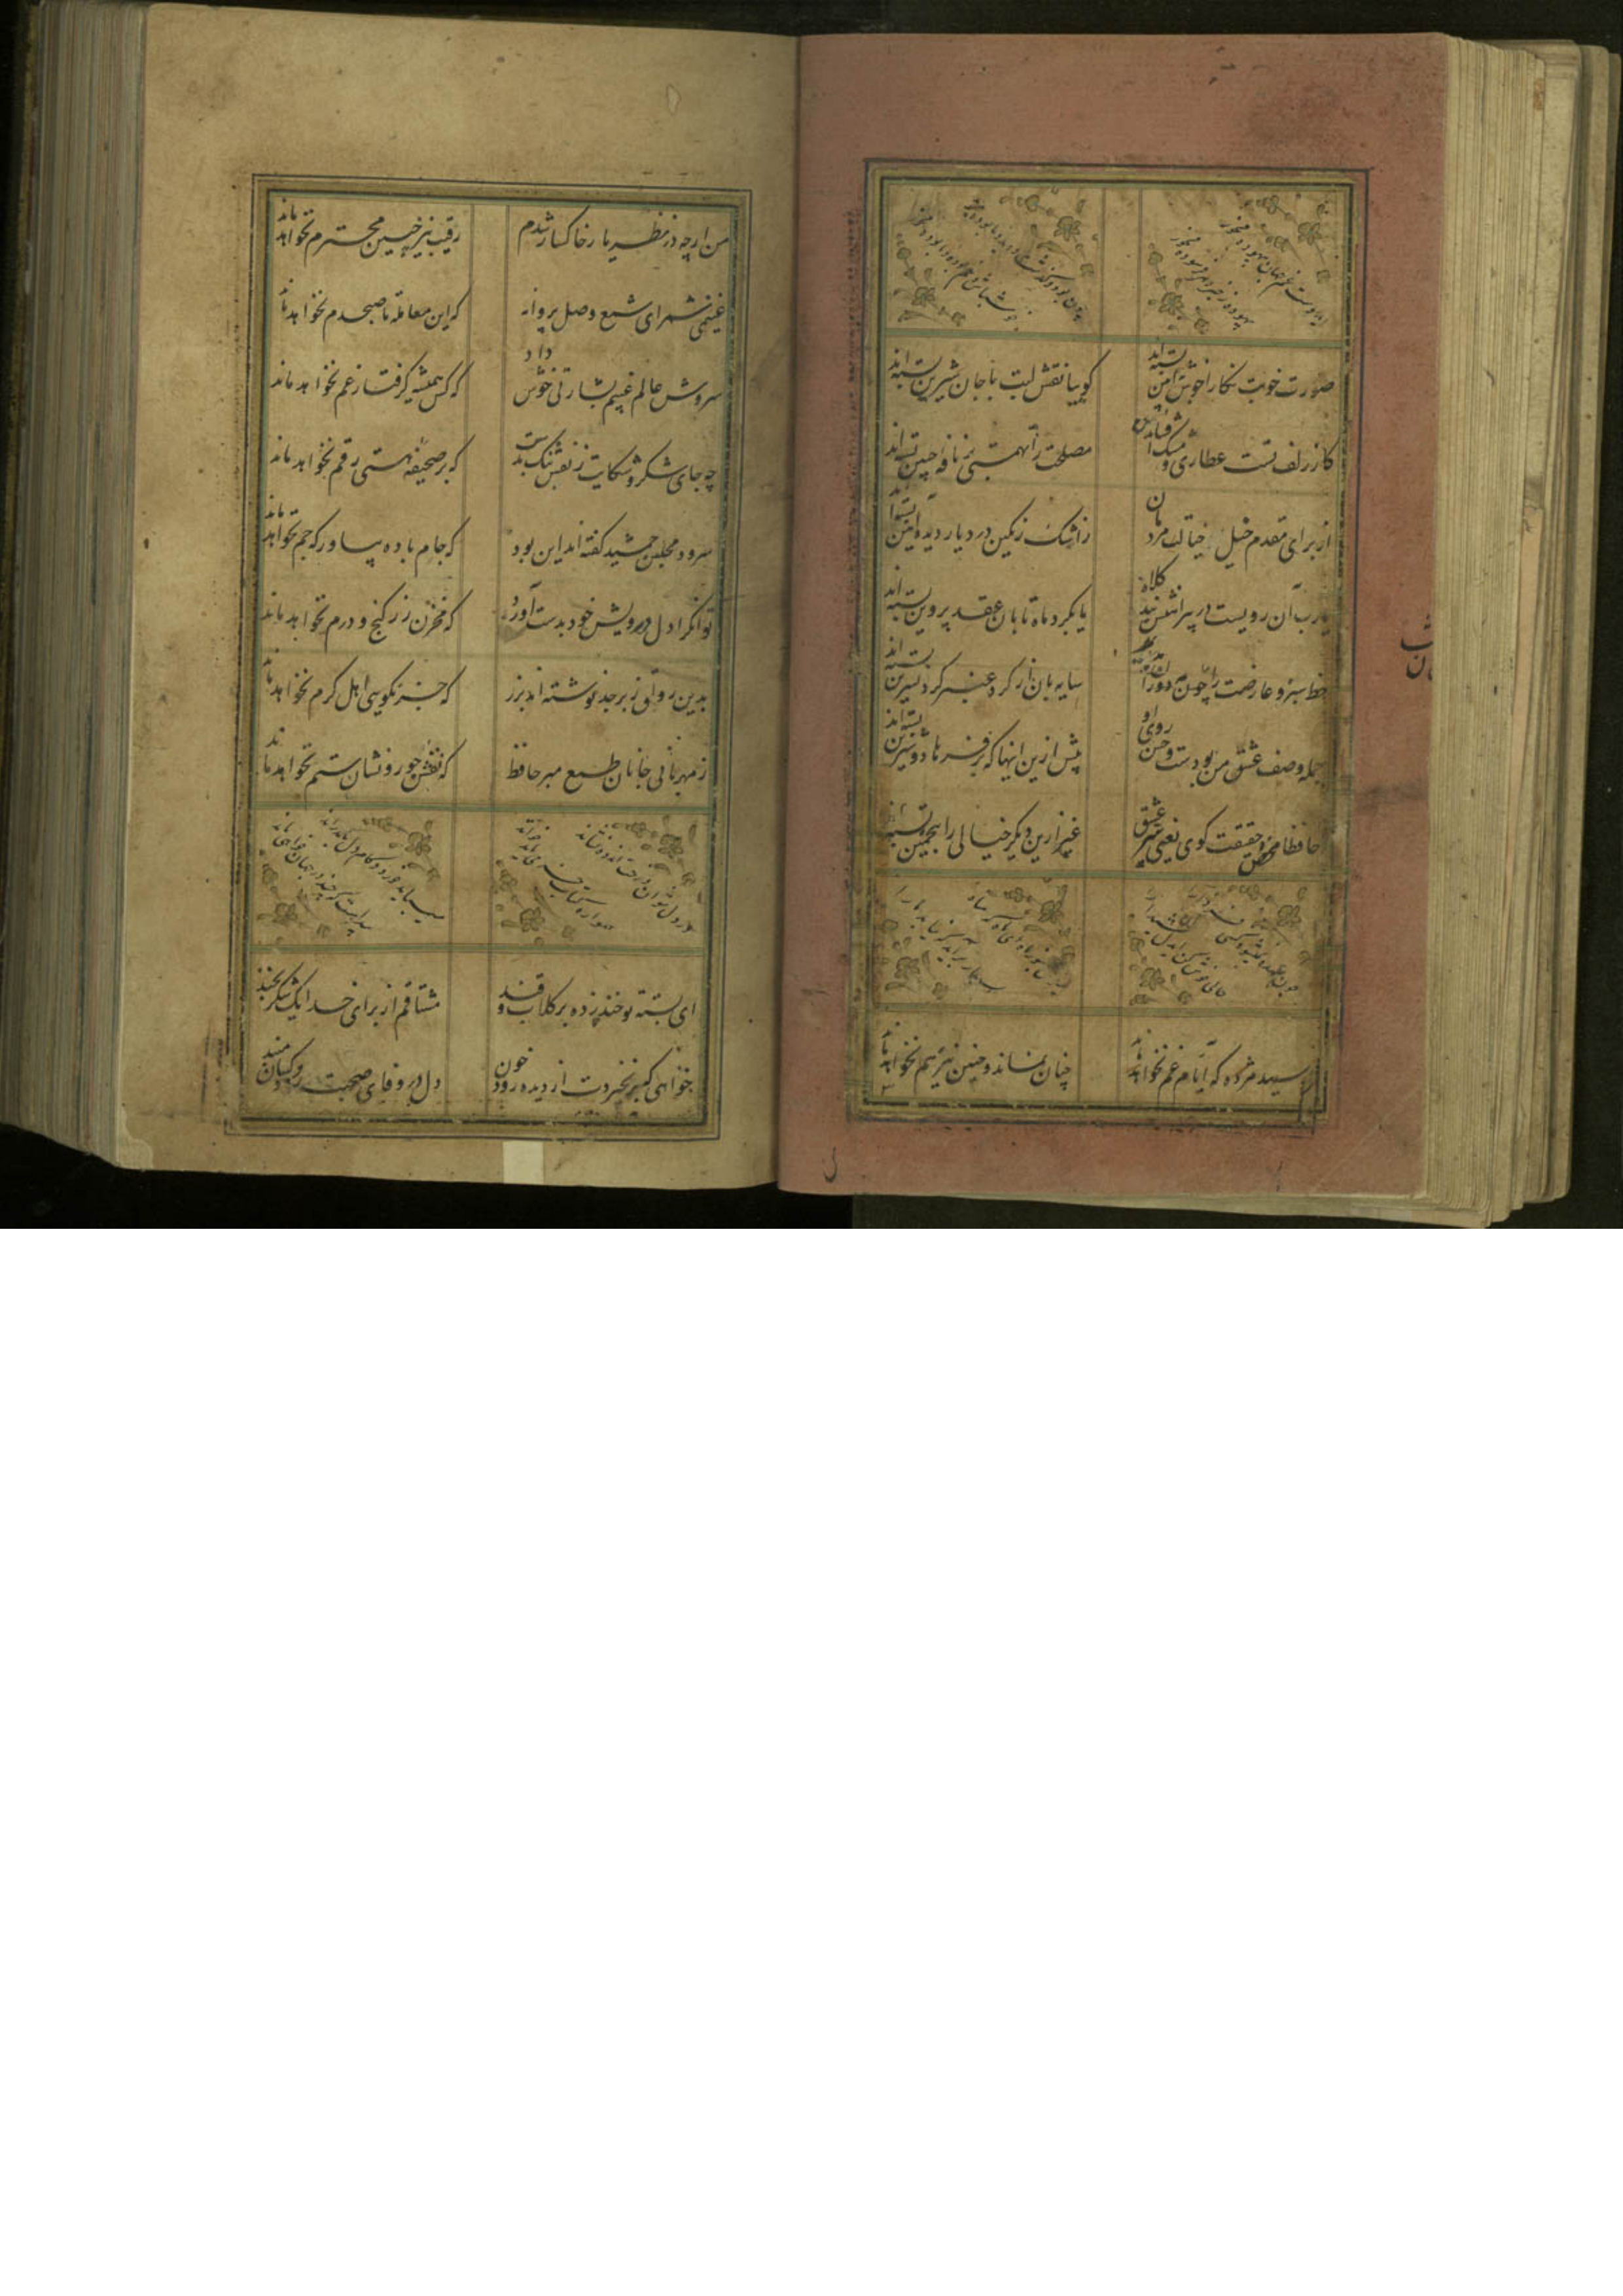 ای دوست غم جهان بیهوده مخور
بیهوده ز غم جهان فرسوده مخور
چون بود گذشت و نیست نابود پدید
خوش باش غم بوده و نابوده مخور
صورت خوبت نگارا خوش آیین بسته‌اند
گوییا نقش لبت با جان شیرین بسته‌اند
کار زلف تست عطاری و مشک افشانی
مصلحت را تهمتی بر نافه چین بسته‌اند
از برای مقدم خیل خیالت مردمان
زاشک رنگین در دیار دیده آیین بسته‌اند
یارب آن رویست در پیرامنش بند کلاه
یا بگرد ماه تابان عقد پروین بسته‌اند
خط سبز و عارضت را چون مه دوران
سایه بان از گرد عنبر گرد نسرین بسته‌اند
جمله وصف عشق من بودست و حسن روی او
پیش ازین اینها که بر فرهاد و شیرین بسته‌اند
حافظا محض حقیقت گوی یعنی سر عشق
غیر ازین دیگر خیالی را بتخمین بسته‌اند
رسید مژده که ایام غم نخواهد ماند
چنان نماند و چنین نیز هم نخواهد ماند
من ارچه در نظر یار خاکسار شدم
رقیب نیز چنین محترم نخواهد ماند
غنیمتی شمر ای شمع وصل پروانه
که این معامله تا صبحدم نخواهد ماند
سروش عالم غیبم بشارتی خوش داد
که کس همیشه گرفتار غم نخواهد ماند
چه جای شکر و شکایت ز نقش نیک و بدست
که بر صحیفه هستی رقم نخواهد ماند
سرود مجلس جمشید گفته‌اند این بود
که جام باده بیاور که جم نخواهد ماند
توانگرا دل درویش خود بدست آور
که مخزن زر و گنج و درم نخواهد ماند
بدین رواق زبرجد نوشته‌اند بزر
که جز نکویی اهل کرم نخواهد ماند
ز مهربانی جانان طمع مبر حافظ
که نقش جور و نشان ستم نخواهد ماند
ای پسته تو خنده زده بر کلاب و قند
مشتاقم از برای خدا یک شکر بخند
خواهی که بر نخیزدت از دیده رود خون
دل در وفای صحبت رود کسان مبند